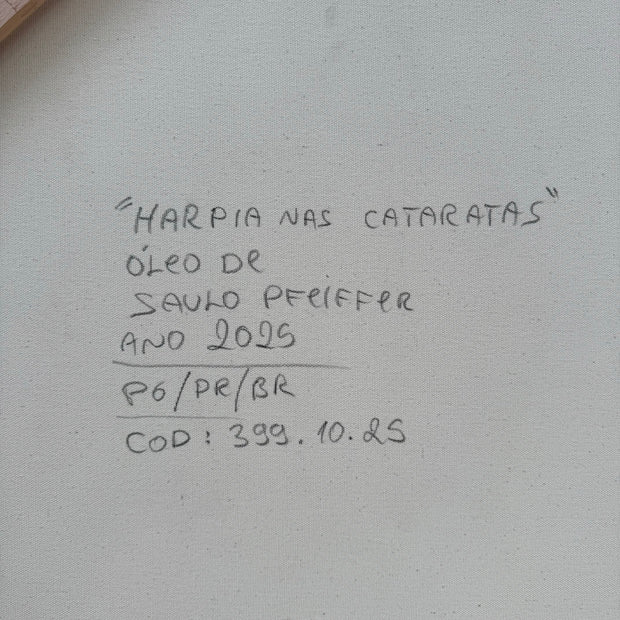 "HARPIA NAS CATARATAS"
ÓLEO DE
SAULO PFEIFFER
ANO 2025
PG/PR/BR
COD: 399.10.25